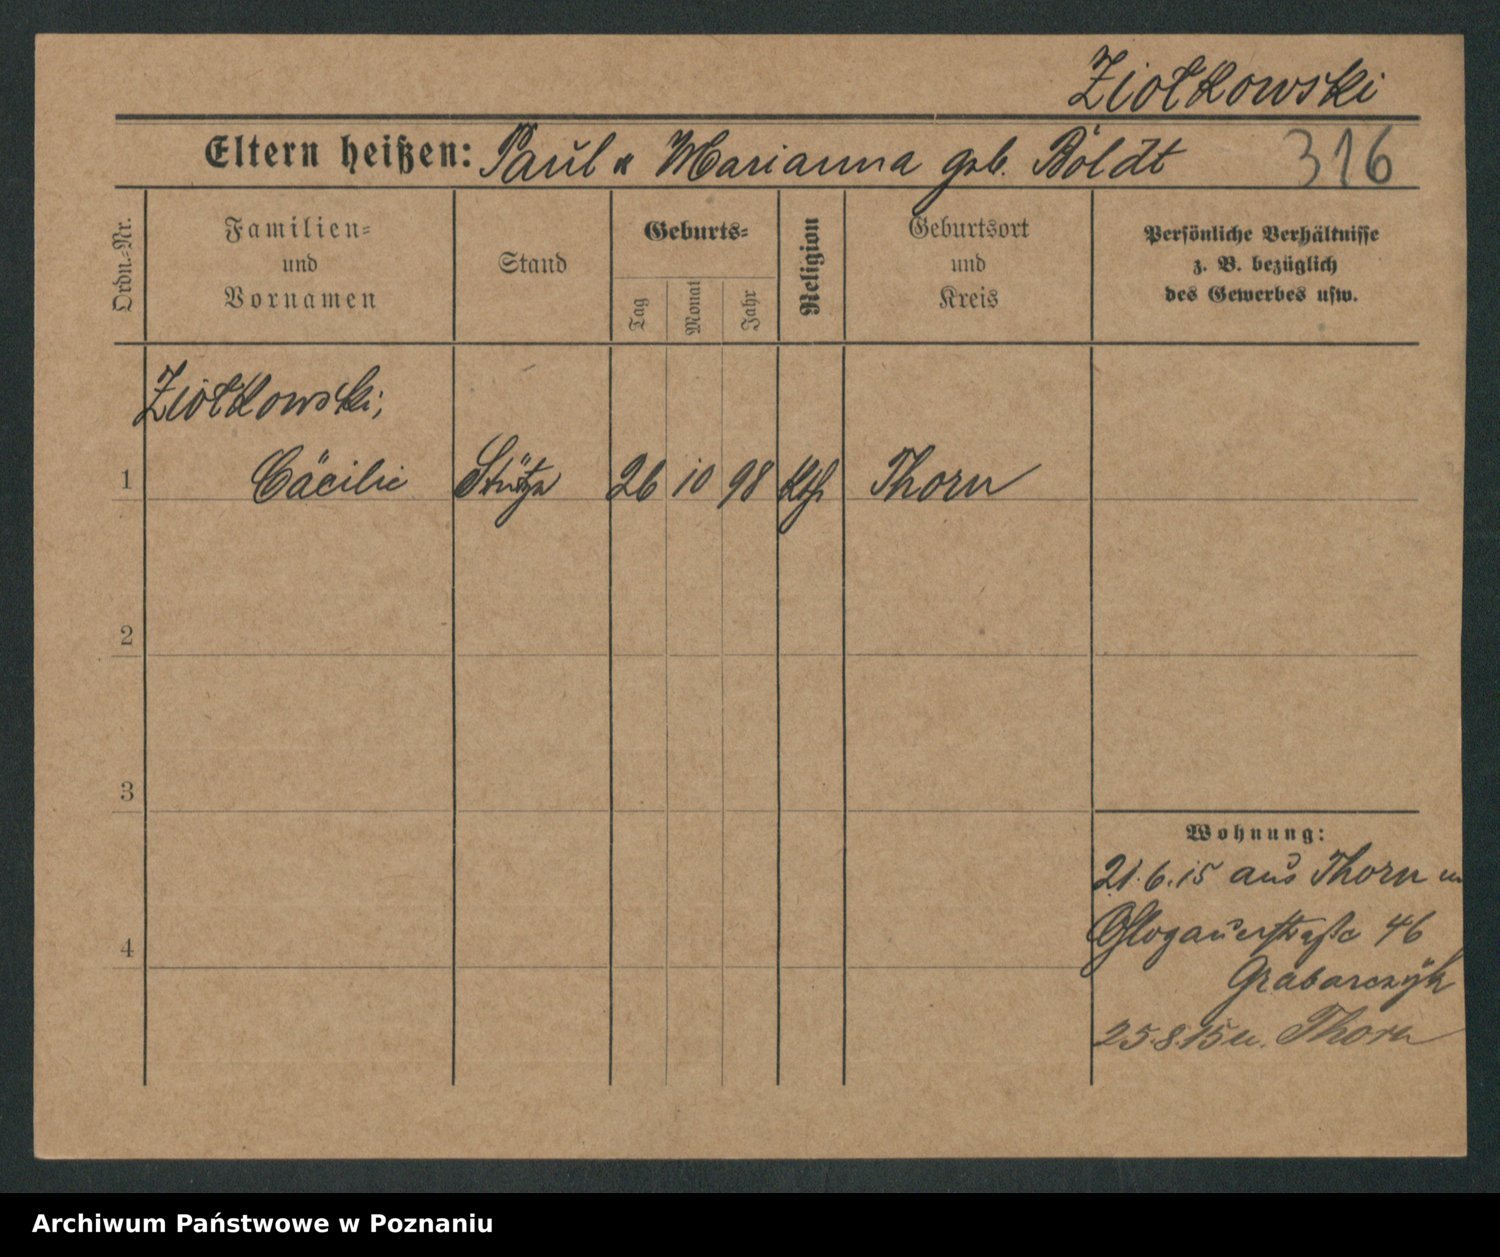 Ziołkowski
Eltern heißen: Paul u Marianna geb. Böldt
316
Ordn.-Nr.
Familien-
und
Vornamen
Stand
Geburts-
Tag
Monat
Jahr
Religion
Geburtsort
und
Kreis
Persönliche Verhältnisse
z. B. bezüglich
des Gewerbes usw.
Ziołkowski,
1 Cäcilie Stütze 26 10 98 kth Thorn
2
3
4
Wohnung:
21.6.15 aus Thorn n
Glogauerstraße 46
Grabarczyk
25.8.15 n. Thorn
Archiwum Państwowe w Poznaniu